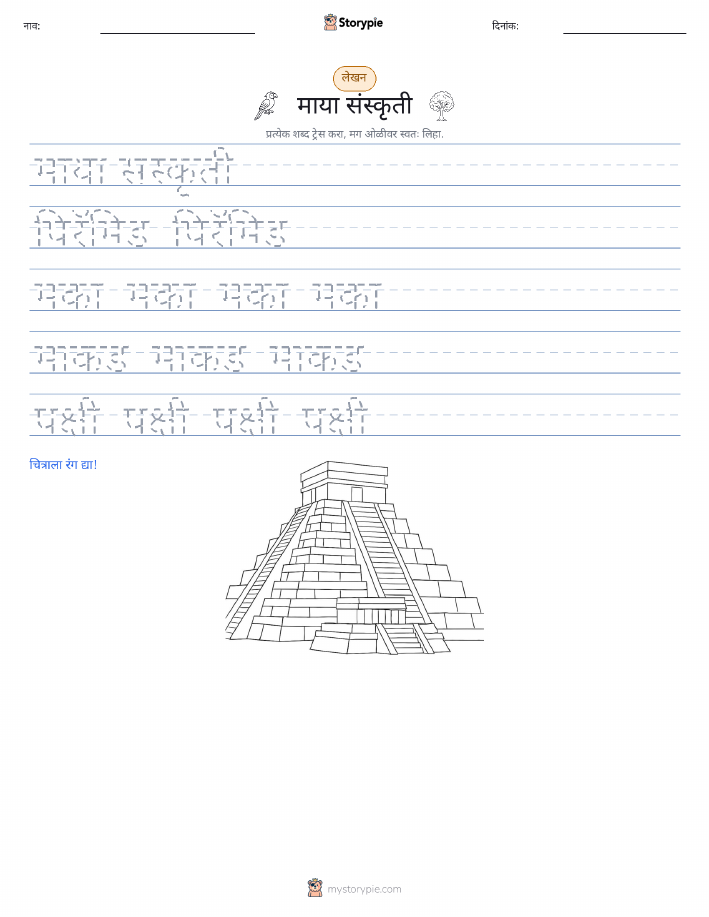 नाव:
Storypie
दिनांक:
लेखन
माया संस्कृती
प्रत्येक शब्द ट्रेस करा, मग ओळीवर स्वतः लिहा.
माया संस्कृती
पिरॅमिड पिरॅमिड
मका मका मका मका
माकड माकड माकड
पक्षी पक्षी पक्षी पक्षी
चित्राला रंग द्या!
mystorypie.com